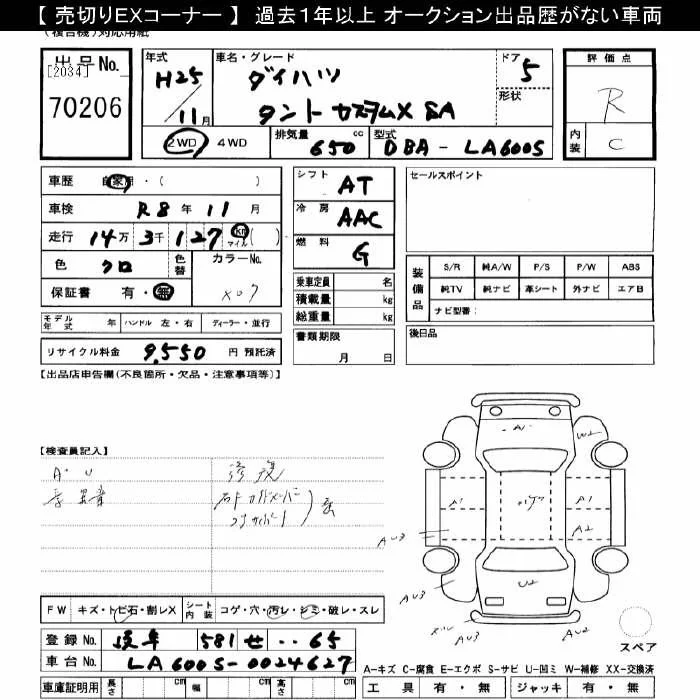 【 売切りEXコーナー 】 過去1年以上 オークション出品歴がない車両
(複合機)対応用紙
出品No.
[2034]
70206
年式
H25
11月
車名・グレード
ダイハツ
タント カスタムX SA
ドア
5
形状
評価点
R
内装
C
2WD 4WD
排気量 650 cc
型式 DBA-LA600S
車歴 自家用・( )
車検 R8年 11月
走行 14万 3千 127 km マイル( )
色 クロ
色替
カラーNo.
X07
保証書 有・無
モデル年式 年
ハンドル 左・右
ディーラー・並行
リサイクル料金 9,550 円 預託済
シフト AT
冷房 AAC
燃料 G
乗車定員 名
積載量 kg
総重量 kg
書類期限
月 日
セールスポイント
装備品
S/R 純A/W P/S P/W ABS
純TV 純ナビ 革シート 外ナビ エアB
ナビ型番:
後日品
【出品店申告欄(不良箇所・欠品・注意事項等)】
【検査員記入】
A・U
修復
A1
W2
A1
A1
A2
AU3
AU3
AU3
U2
AU2
スペア
FW キズ・トビ石・割レX
シート内装 コゲ・穴・汚レ・シミ・破レ・スレ
登録No. 岐阜 581 せ ・・65
車台No. LA600S-0024627
車庫証明用 長さ cm 幅 cm 高さ cm
A-キズ C-腐食 E-エクボ S-サビ U-凹ミ W-補修 XX-交換済
工具 有・無 ジャッキ 有・無